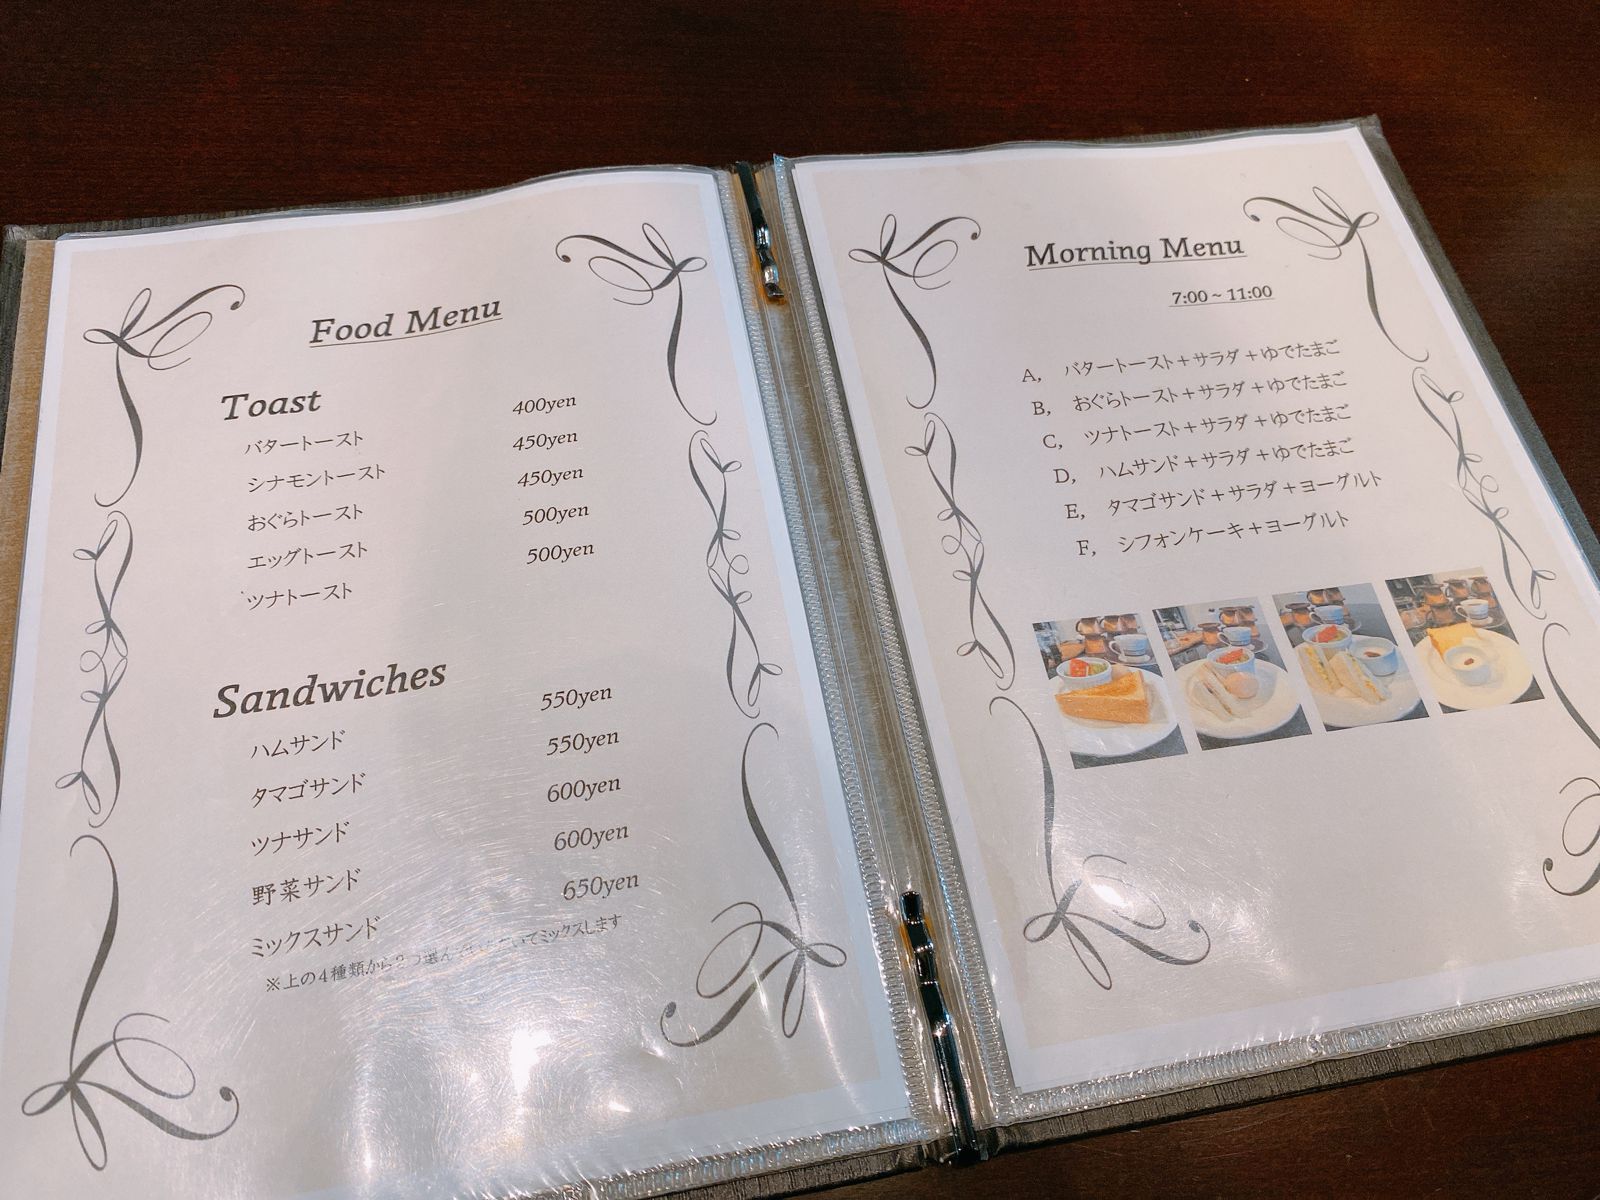 Food Menu
Toast
バタートースト 400yen
シナモントースト 450yen
おぐらトースト 450yen
エッグトースト 500yen
ツナトースト 500yen
Sandwiches
ハムサンド 550yen
タマゴサンド 550yen
ツナサンド 600yen
野菜サンド 600yen
ミックスサンド 650yen
※上の4種類から2つ選んでいただいてミックスします
Morning Menu
7:00~11:00
A, バタートースト+サラダ+ゆでたまご
B, おぐらトースト+サラダ+ゆでたまご
C, ツナトースト+サラダ+ゆでたまご
D, ハムサンド+サラダ+ゆでたまご
E, タマゴサンド+サラダ+ヨーグルト
F, シフォンケーキ+ヨーグルト